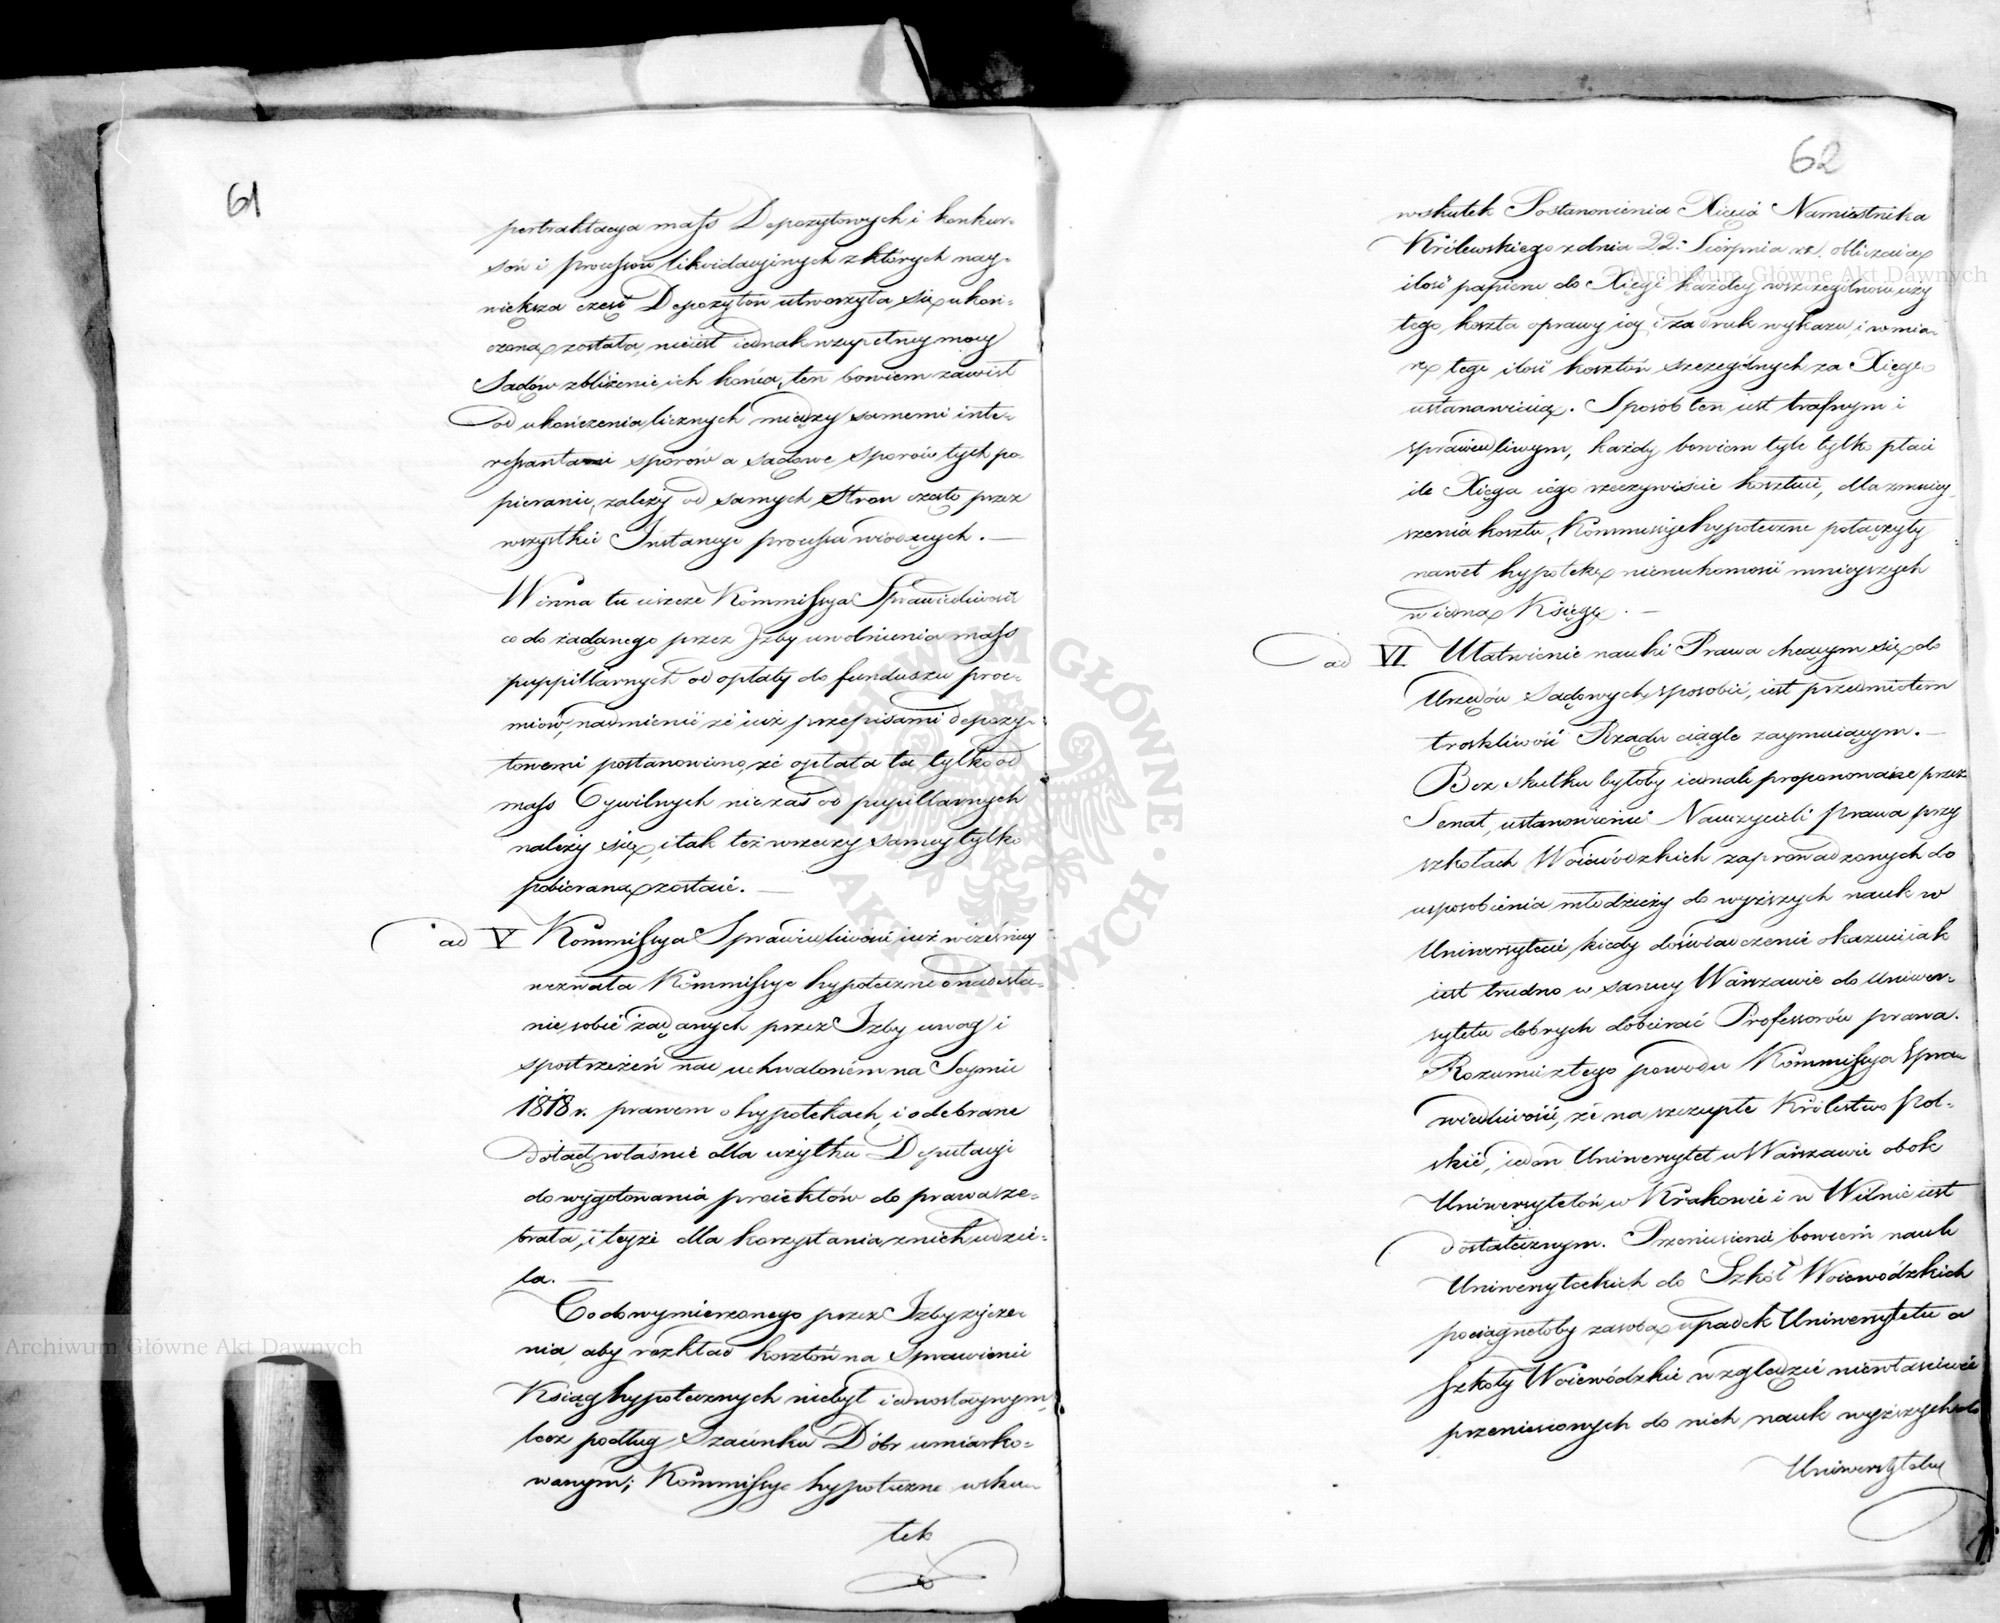 61
pertraktacya mass Depozytowych i konkur-
sów i processów likwidacyjnych z których nay-
większa część Depozytów utworzyła się ukoń-
czoną została, nieiest iednak w zupełney mocy
Sądów zbliżenie ich końca, ten bowiem zawisł
od ukończenia licznych między samemi inte-
ressantami sporów a sądowe sporów tych po-
pieranie, zależy od samych Stron często przez
wszystkie Instancye processa wiodących. —
Winna tu ieszcze Kommissya Sprawiedliwości
co do żądanego przez Izby uwolnienia mass
puppillarnych od opłaty do funduszu proc-
miów, nadmienić że iuż przepisami depozy-
towemi postanowiono, że opłata ta tylko od
mass Cywilnych nie zaś od pupillarnych
należy się, i tak też w rzeczy samey tylko
pobieraną zostaie. —
ad V Kommissya Sprawiedliwości iuż wcześniey
wezwała Kommissye hypoteczne o nadesła-
nie sobie żądanych przez Izby uwag i
spostrzeżeń nad uchwalonem na Seymie
1818 r. prawem o hypotekach, i odebrane
dotąd właśnie dla użytku Deputacyi
do wygotowania proiektów do prawa ze-
brała, i teyże dla korzystania z nich udzie-
la. —
Co do wymierzonego przez Izby życze-
nia, aby rozkład kosztów na Sprawienie
Ksiąg hypotecznych niebył iednostaynym,
lecz podług Szacunku Dóbr umiarko-
wanym; Kommissye hypoteczne wsku-
tek
62
wskutek Postanowienia Xięcia Namiestnika
Królewskiego z dnia 22. Sierpnia r.z. obliczaiąc
ilość papieru do Xięgi każdey wszczególnosci uży
tego, koszta oprawy iey i za druk wykazu, i w mia-
rę tego ilość kosztów szczególnych za Xięgę
ustanawiaią. Sposób ten iest trafnym i
sprawiedliwym, każdy bowiem tyle tylko płaci
ile Xięga iego rzeczywiście kosztuie, dla zmniey-
szenia kosztu, Kommissye hypoteczne połączyły
nawet hypotekę nieruchomości mnieyszych
w iedną Księgę. —
ad VI Ułatwienie nauki Prawa chcącym się do
Urzędów Sądowych sposobić, iest przedmiotem
troskliwość Rządu ciągle zaymuiącym. —
Bez skutku byłoby iednak proponowane przez
Senat, ustanowienie Nauczycieli prawa przy
szkołach Woiewódzkich zaprowadzonych do
usposobienia młodzieży do wyższych nauk w
Uniwersytecie kiedy doświadczenie okazuie iak
iest trudno w samey Warszawie do Uniwer-
sytetu dobrych dobierać Professorów prawa.
Rozumie z tego powodu Kommissya Spra-
wiedliwości, że na szczupłe Królestwo Pol-
skie, ieden Uniwersytet w Warszawie obok
Uniwersytetów w Krakowie i w Wilnie iest
dostatecznym. Przeniesienie bowiem nauk
Uniwersyteckich do Szkół Woiewódzkich
pociągnęłoby za sobą upadek Uniwersytetu a
Szkoły Woiewódzkie względzie niewłaściwie
przeniesionych do nich nauk wyższych do
Uniwersytetu
Archiwum Główne Akt Dawnych
Archiwum Główne Akt Dawnych
ARCHIWUM GŁÓWNE AKT DAWNYCH